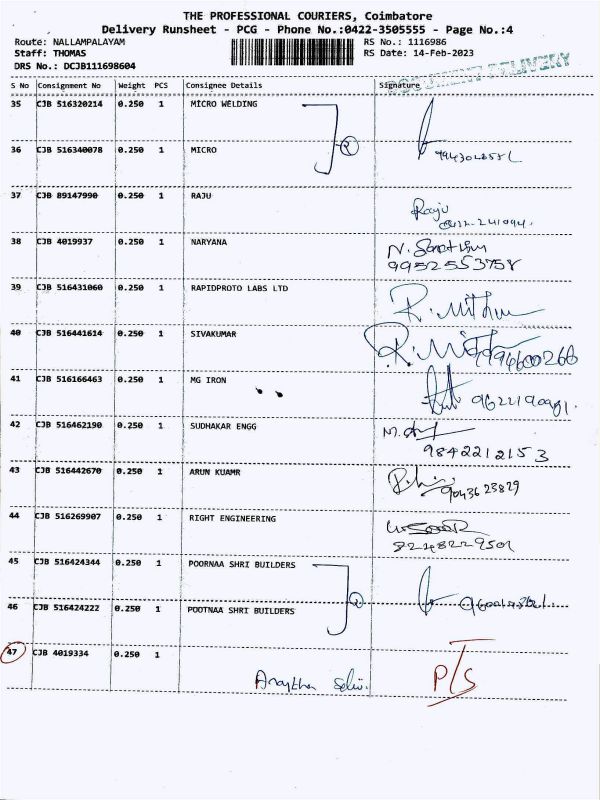 THE PROFESSIONAL COURIERS, Coimbatore
Delivery Runsheet - PCG - Phone No.:0422-3505555 - Page No.:4
Route: NALLAMPALAYAM RS No.: 1116986
Staff: THOMAS RS Date: 14-Feb-2023
DRS No.: DCJB111698604
DOCUMENT DELIVERY
S No Consignment No Weight PCS Consignee Details Signature
35 CJB 516320214 0.250 1 MICRO WELDING
36 CJB 516340078 0.250 1 MICRO
2
37 CJB 89147990 0.250 1 RAJU
Raju
38 CJB 4019937 0.250 1 NARYANA
9952553758
39 CJB 516431060 0.250 1 RAPIDPROTO LABS LTD
R. Mithu
40 CJB 516441614 0.250 1 SIVAKUMAR
41 CJB 516166463 0.250 1 MG IRON
42 CJB 516462190 0.250 1 SUDHAKAR ENGG
9842212153
43 CJB 516442670 0.250 1 ARUN KUAMR
9043623829
44 CJB 516269907 0.250 1 RIGHT ENGINEERING
8248229501
45 CJB 516424344 0.250 1 POORNAA SHRI BUILDERS
2
46 CJB 516424222 0.250 1 POOTNAA SHRI BUILDERS
47 CJB 4019334 0.250 1
P/S